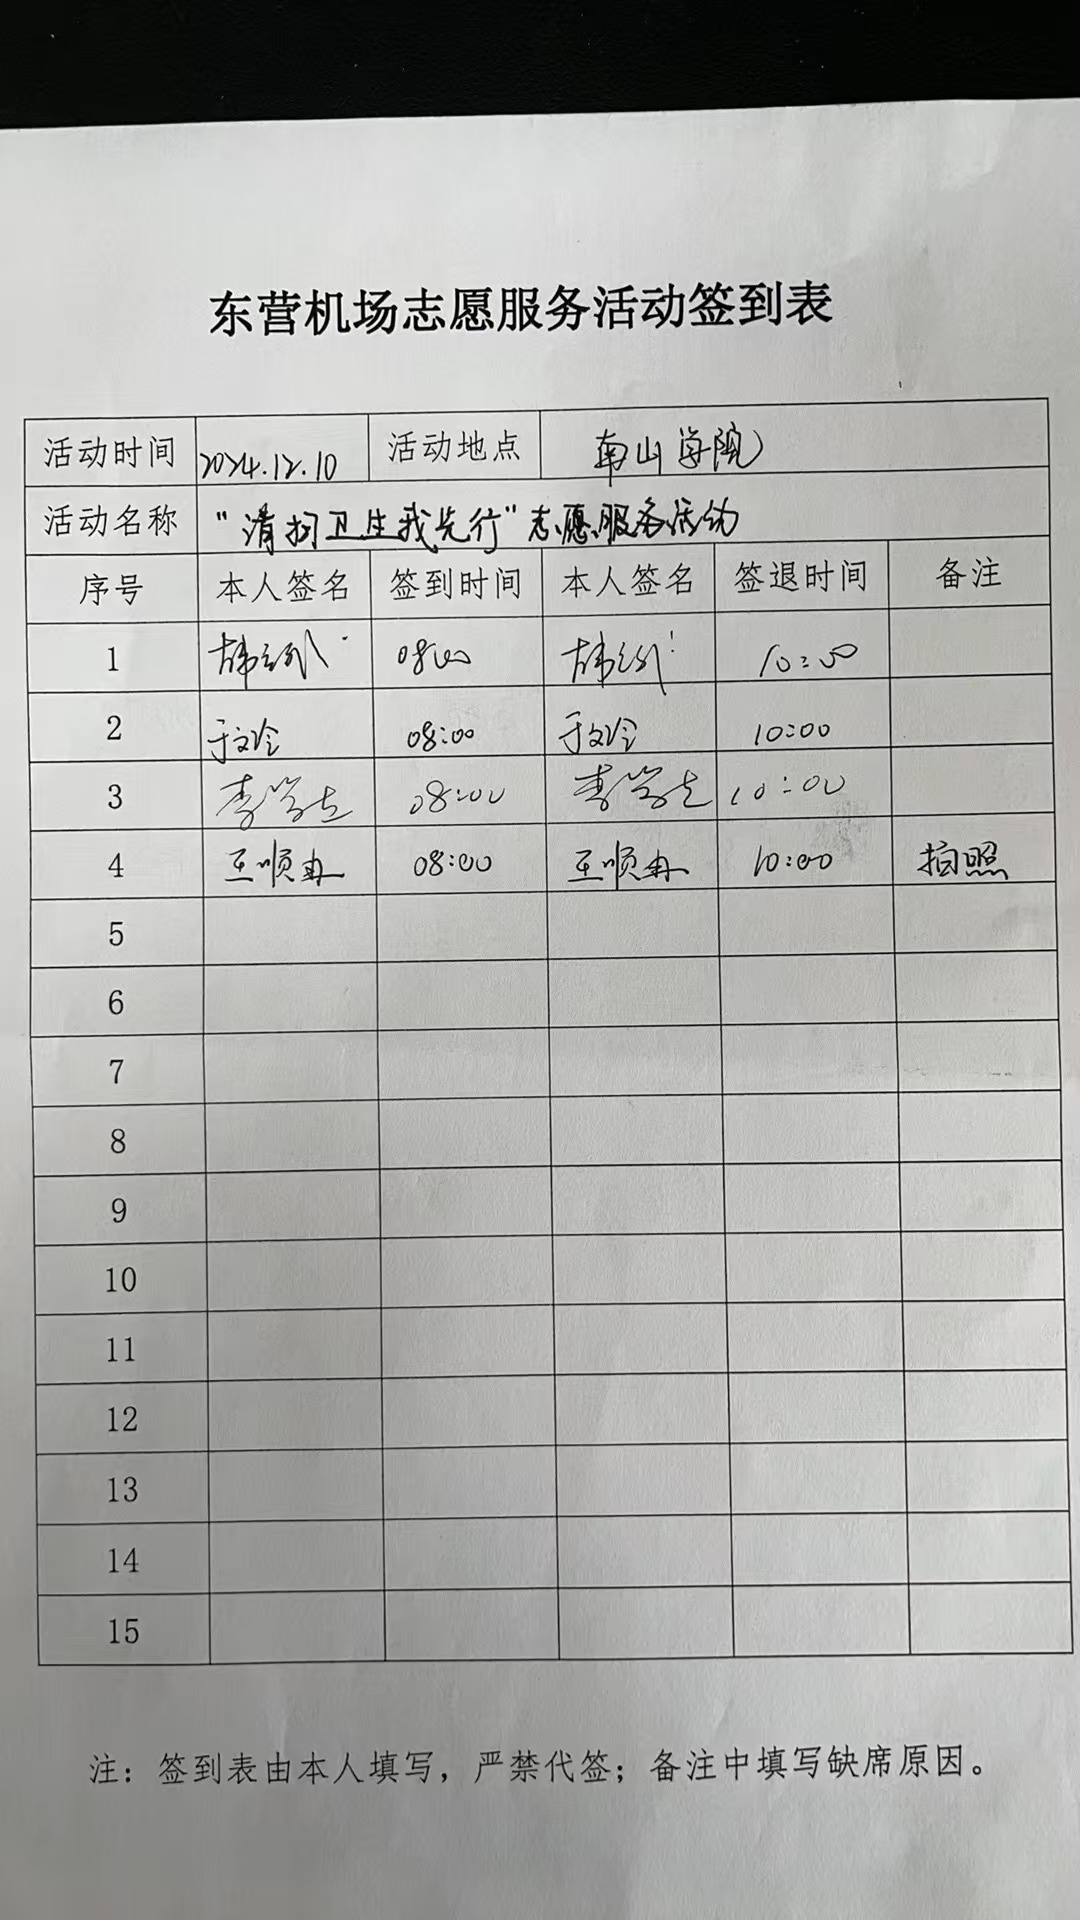 东营机场志愿服务活动签到表
活动时间 2024.12.10 活动地点 南山学院
活动名称 "清扫卫生我先行"志愿服务活动
序号 本人签名 签到时间 本人签名 签退时间 备注
1 08:00 10:00
2 于文冷 08:00 于文冷 10:00
3 李学志 08:00 李学志 10:00
4 王顺冉 08:00 王顺冉 10:00 拍照
5
6
7
8
9
10
11
12
13
14
15
注：签到表由本人填写，严禁代签；备注中填写缺席原因。